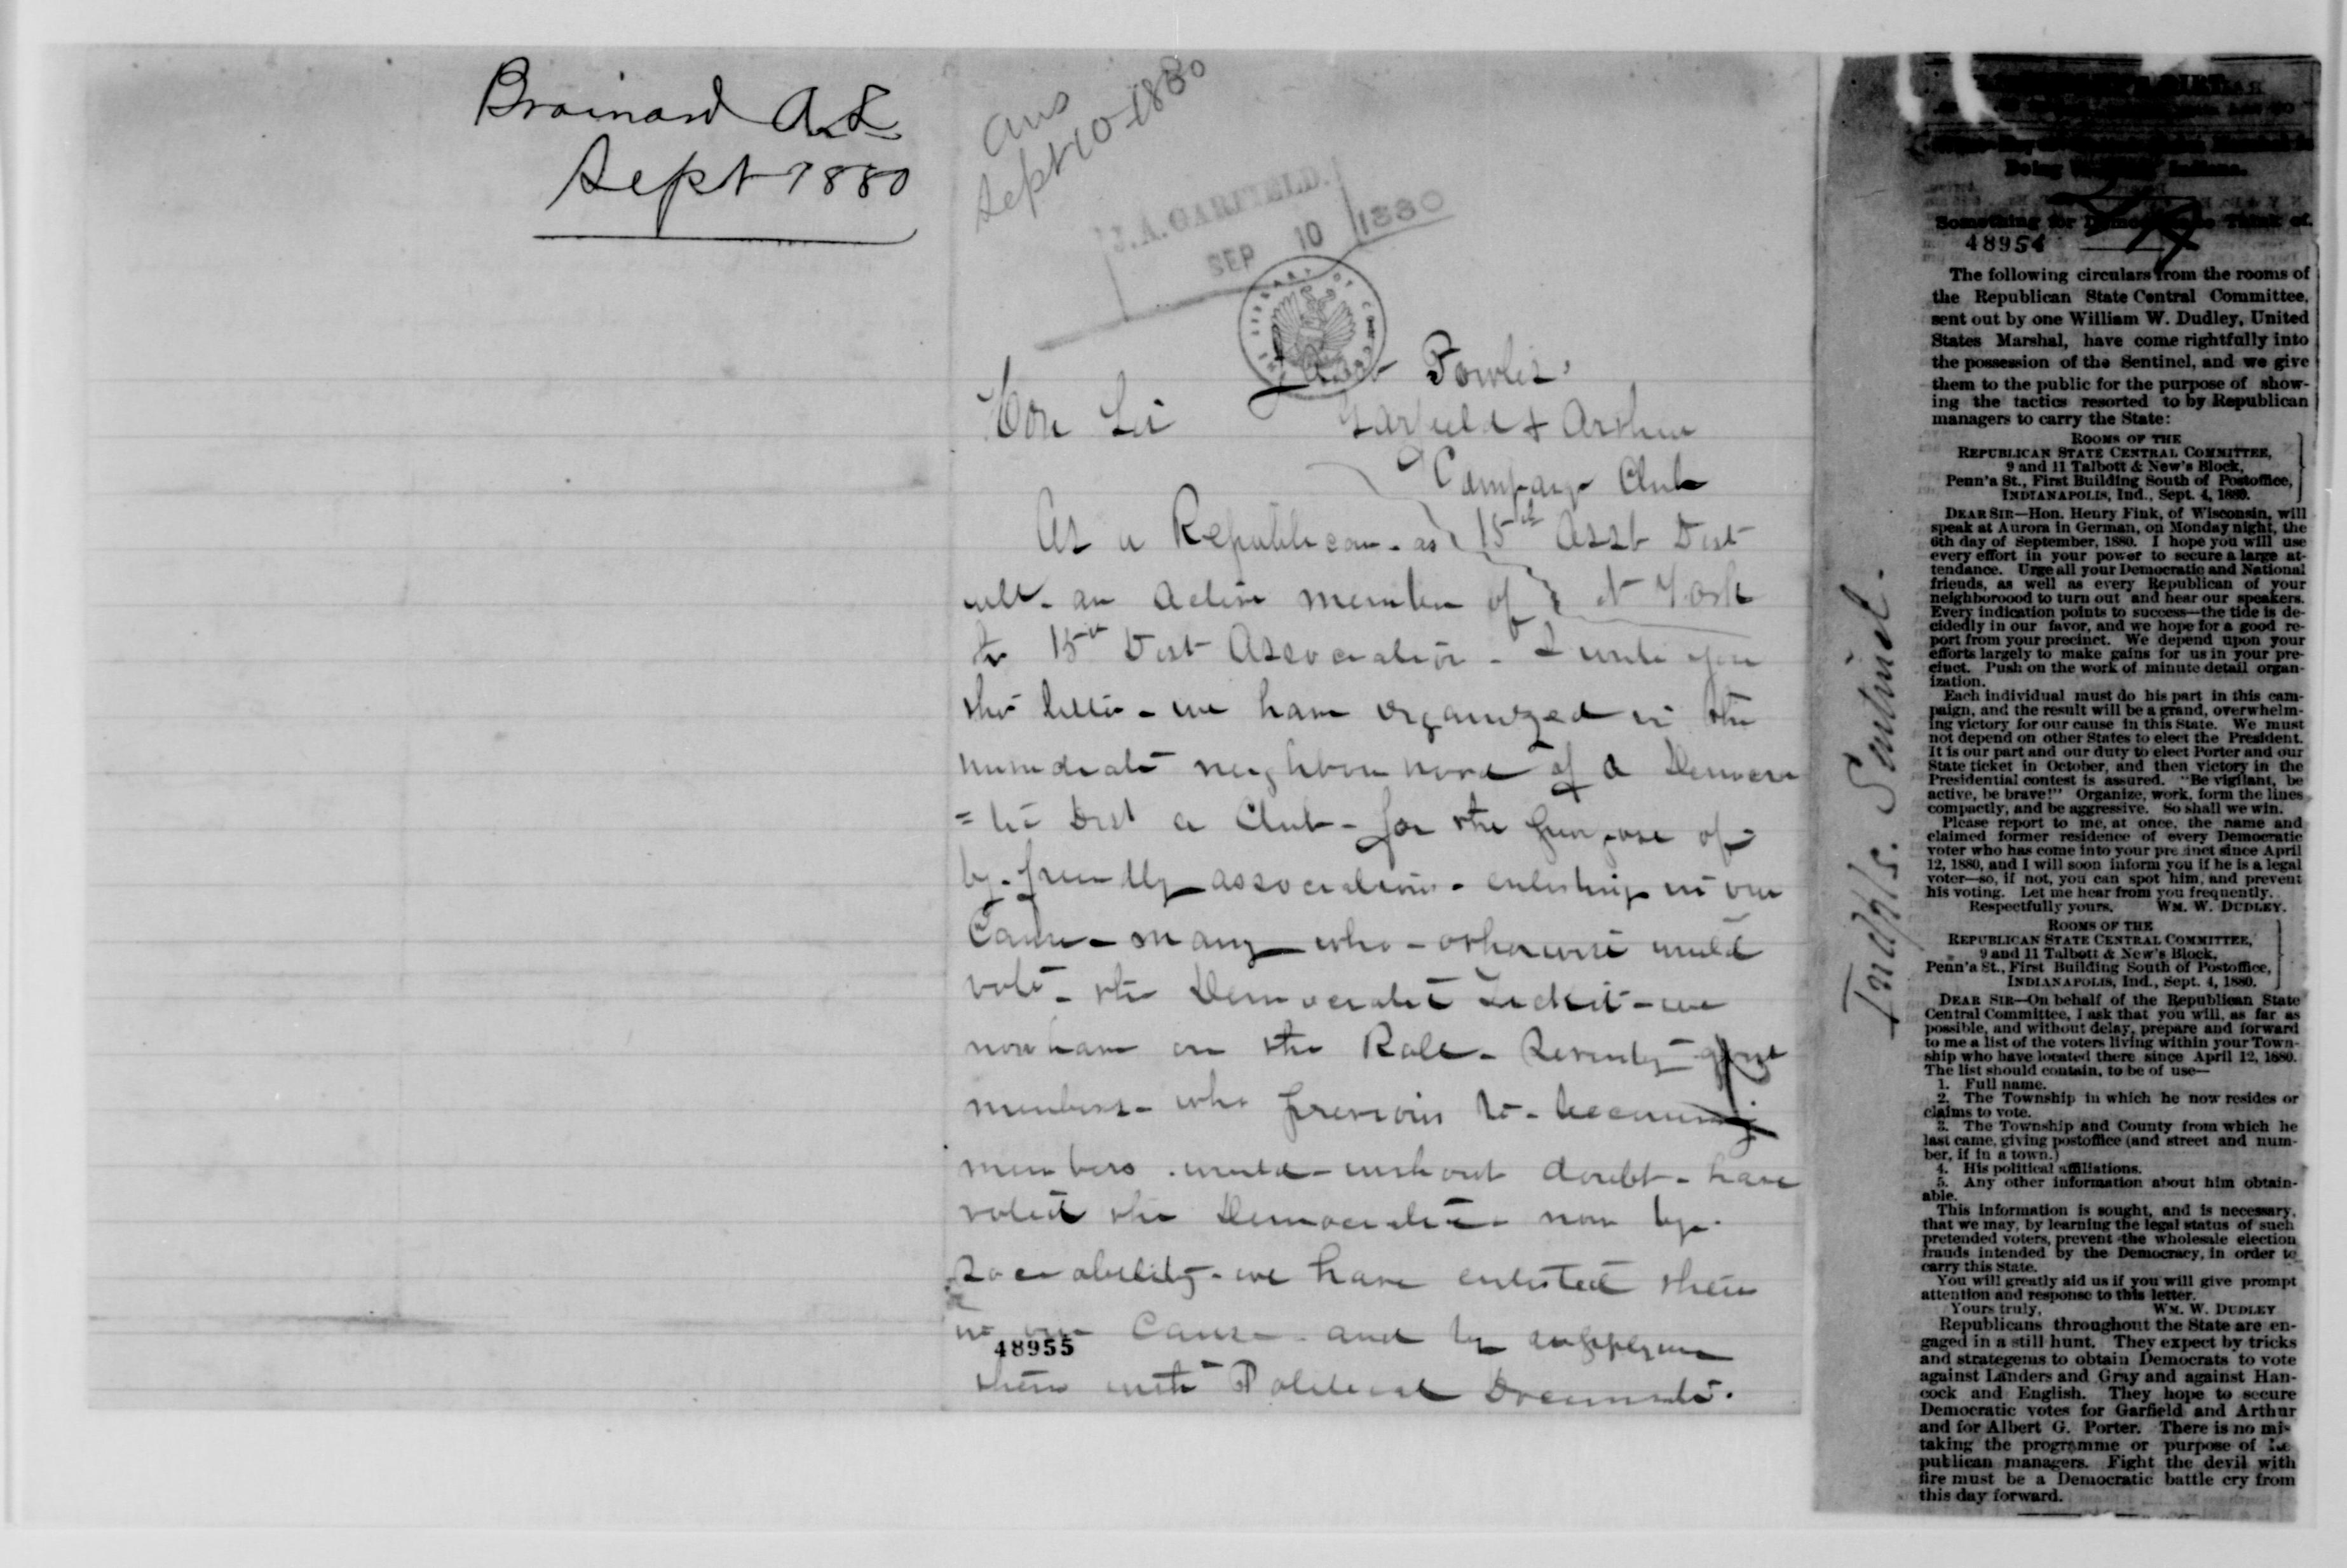 Brainard A.L
Sept 1880
Ans
Sept 10-1880
J.A. GARFIELD.
SEP 10 1880
LIBRARY OF CONGRESS
Hon Sir
Garfield & Arthur
Campaign Club
15th Asst Dist
N York
As a Republican - as
well - an active member of
the 15th Dist Association - I write you
this letter - we have organized in the
immediate neighbourhood of a Democra
=tic Dist a Club - for the purpose of
by - friendly associations - enlisting in our
Cause - many who - otherwise would
vote - the Democratic Ticket - we
now have on the Role - Seventy
members - who previous to - becoming
members - would - without doubt - have
voted the Democratic - now by
sociability - we have enlisted them
in our Cause - and by supplying
them with Political Documents.
48955
Indpls. Sentinel.
Being Indiana.
Something for Think of.
48954
The following circulars from the rooms of
the Republican State Central Committee,
sent out by one William W. Dudley, United
States Marshal, have come rightfully into
the possession of the Sentinel, and we give
them to the public for the purpose of show-
ing the tactics resorted to by Republican
managers to carry the State:
ROOMS OF THE
REPUBLICAN STATE CENTRAL COMMITTEE,
9 and 11 Talbott & New's Block,
Penn'a St., First Building South of Postoffice,
INDIANAPOLIS, Ind., Sept. 4, 1880.
DEAR SIR—Hon. Henry Fink, of Wisconsin, will
speak at Aurora in German, on Monday night, the
6th day of September, 1880. I hope you will use
every effort in your power to secure a large at-
tendance. Urge all your Democratic and National
friends, as well as every Republican of your
neighboroood to turn out and hear our speakers.
Every indication points to success—the tide is de-
cidedly in our favor, and we hope for a good re-
port from your precinct. We depend upon your
efforts largely to make gains for us in your pre-
cinct. Push on the work of minute detail organ-
ization.
Each individual must do his part in this cam-
paign, and the result will be a grand, overwhelm-
ing victory for our cause in this State. We must
not depend on other States to elect the President.
It is our part and our duty to elect Porter and our
State ticket in October, and then victory in the
Presidential contest is assured. "Be vigilant, be
active, be brave!" Organize, work, form the lines
compactly, and be aggressive. So shall we win.
Please report to me, at once, the name and
claimed former residence of every Democratic
voter who has come into your precinct since April
12, 1880, and I will soon inform you if he is a legal
voter—so, if not, you can spot him, and prevent
his voting. Let me hear from you frequently.
Respectfully yours, WM. W. DUDLEY.
ROOMS OF THE
REPUBLICAN STATE CENTRAL COMMITTEE,
9 and 11 Talbott & New's Block,
Penn'a St., First Building South of Postoffice,
INDIANAPOLIS, Ind., Sept. 4, 1880.
DEAR SIR—On behalf of the Republican State
Central Committee, I ask that you will, as far as
possible, and without delay, prepare and forward
to me a list of the voters living within your Town-
ship who have located there since April 12, 1880.
The list should contain, to be of use—
1. Full name.
2. The Township in which he now resides or
claims to vote.
3. The Township and County from which he
last came, giving postoffice (and street and num-
ber, if in a town.)
4. His political affiliations.
5. Any other information about him obtain-
able.
This information is sought, and is necessary,
that we may, by learning the legal status of such
pretended voters, prevent the wholesale election
frauds intended by the Democracy, in order to
carry this State.
You will greatly aid us if you will give prompt
attention and response to this letter.
Yours truly, WM. W. DUDLEY
Republicans throughout the State are en-
gaged in a still hunt. They expect by tricks
and strategems to obtain Democrats to vote
against Landers and Gray and against Han-
cock and English. They hope to secure
Democratic votes for Garfield and Arthur
and for Albert G. Porter. There is no mis-
taking the programme or purpose of Re
publican managers. Fight the devil with
fire must be a Democratic battle cry from
this day forward.